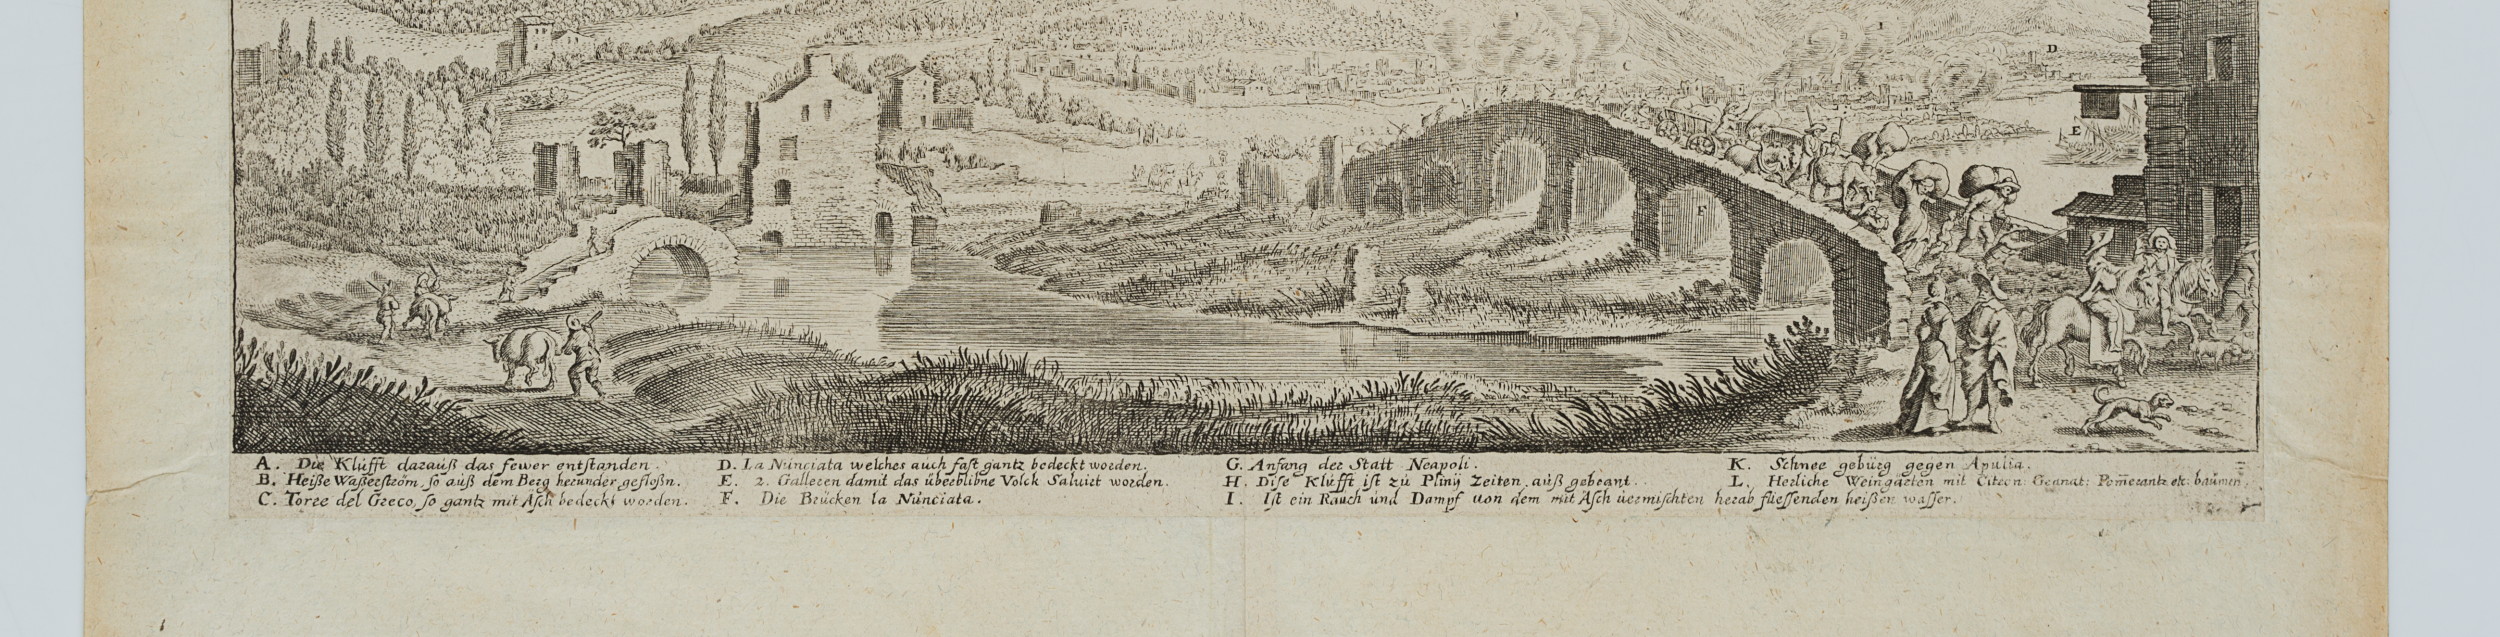 I
D
C
E
F
A. Die Klüfft darauß das fewer entstanden.
B. Heiße Waßerström, so auß dem Berg herunder gefloßn.
C. Torre del Greco, so gantz mit Asch bedeckt worden.
D. La Nunciata welches auch fast gantz bedeckt worden.
E. 2. Galleren damit das überblibne Volck Saluirt worden.
F. Die Brücken la Nunciata.
G. Anfang der Statt Neapoli.
H. Dise Klüfft ist zu Plinÿ Zeiten auß gebrant.
I. Ist ein Rauch und Dampf von dem mit Asch vermischten herab fliessenden heißen wasser.
K. Schnee gebürg gegen Apulia.
L. Herliche Weingärten mit Citron: Granat: Pomerantz etc: bäumen.